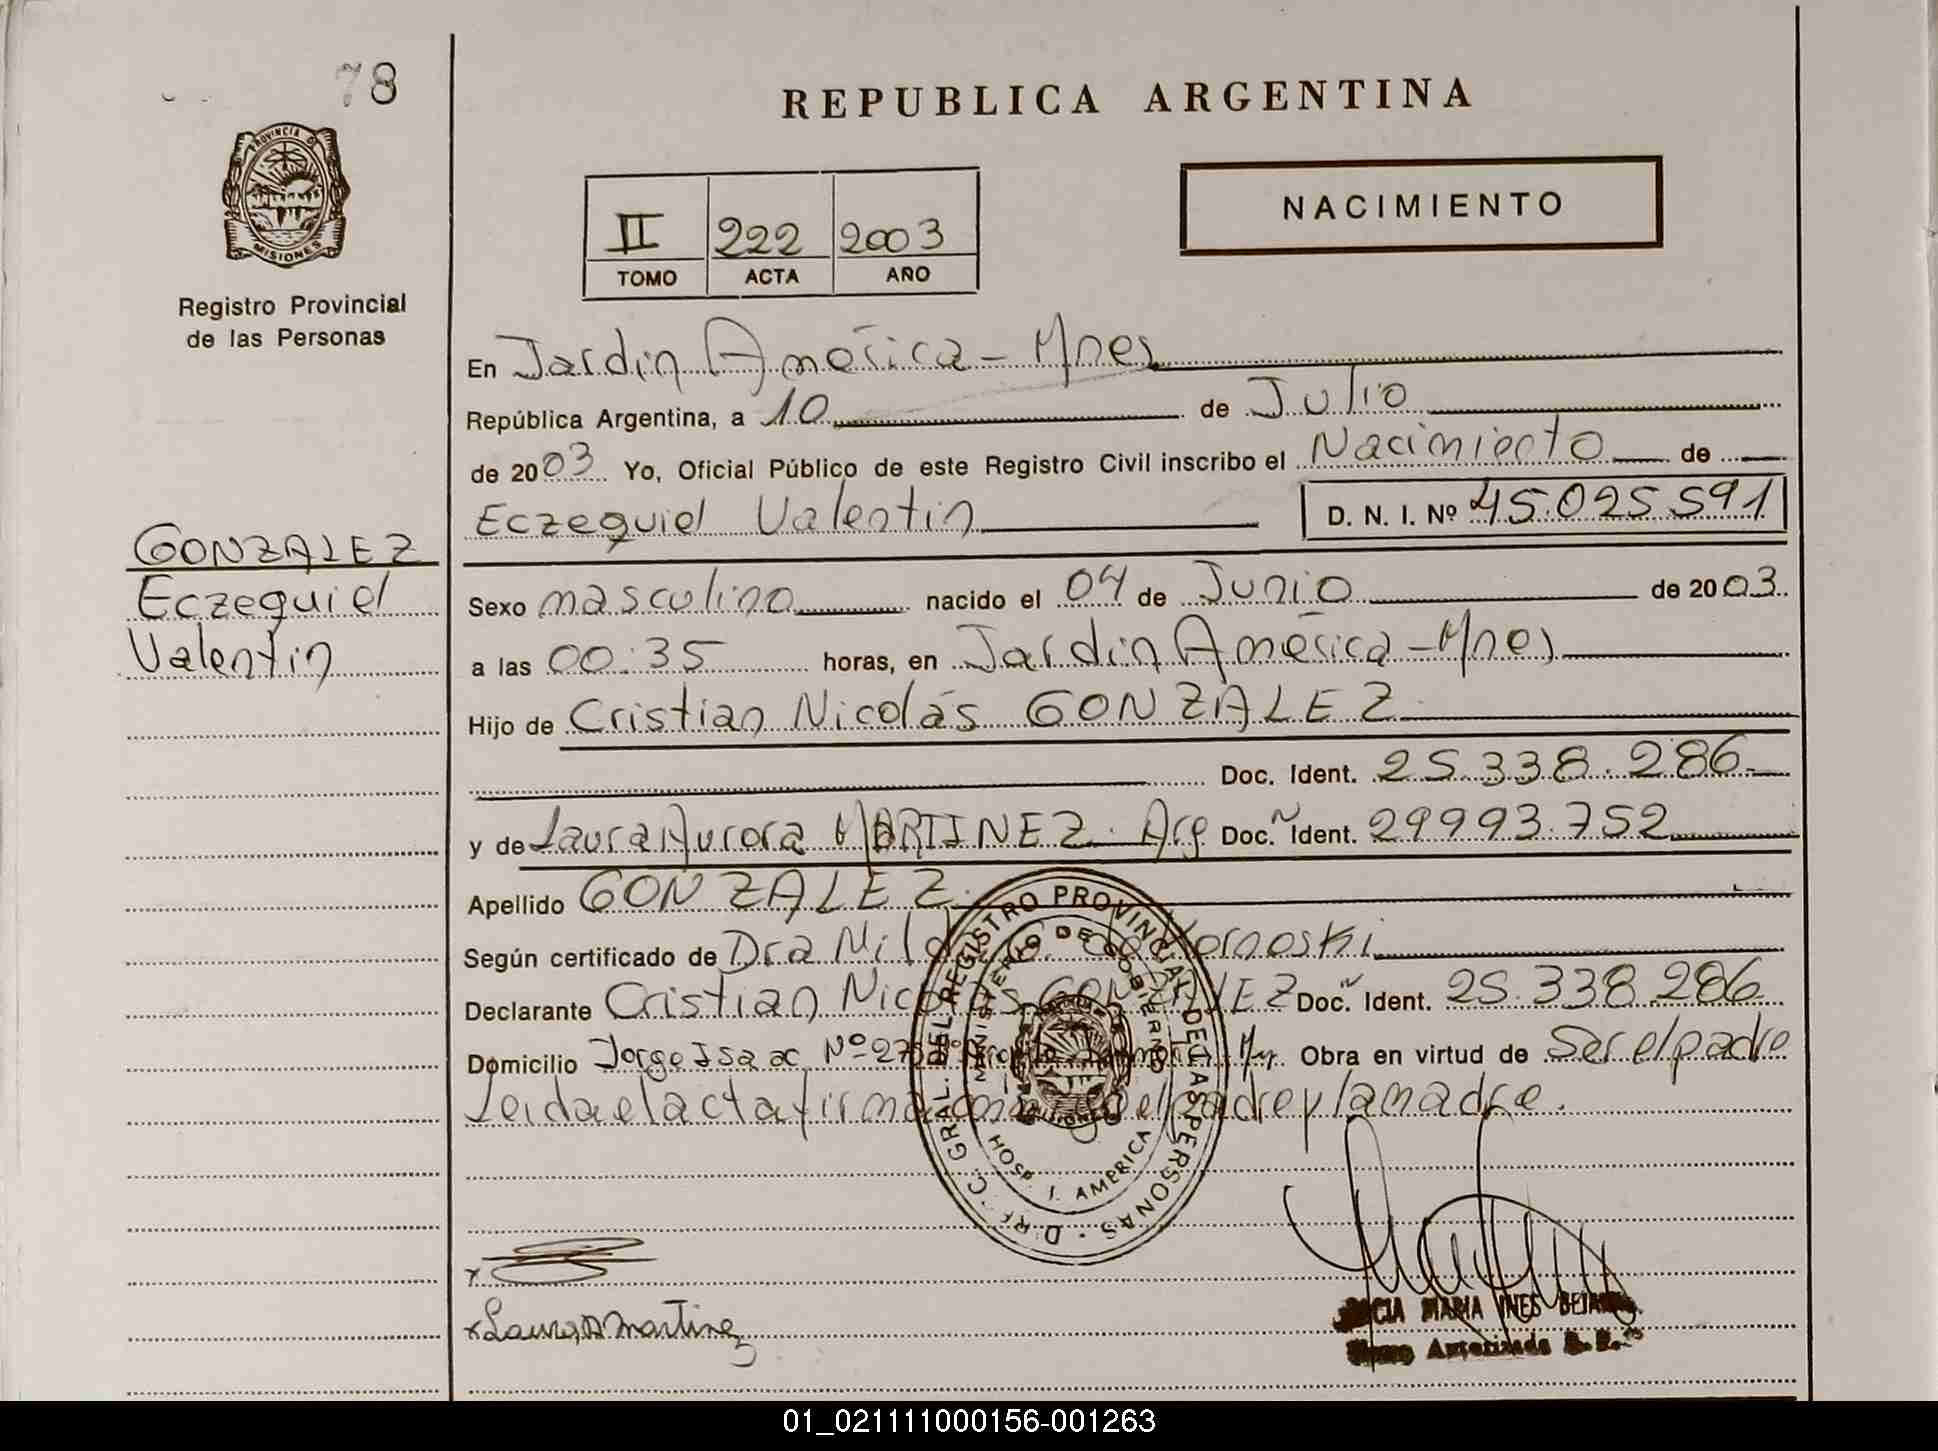 78
REPUBLICA ARGENTINA
PROVINCIA DE
MISIONES
Registro Provincial
de las Personas
II 222 2003
TOMO ACTA AÑO
NACIMIENTO
En Jardin América - Mnes
República Argentina, a 10 de Julio
de 2003 Yo, Oficial Público de este Registro Civil inscribo el Nacimiento de
Eczequiel Valentin D. N. I. Nº 45.025.591
GONZALEZ
Eczequiel
Valentin
Sexo masculino nacido el 04 de Junio de 2003.
a las 00:35 horas, en Jardin América - Mnes
Hijo de Cristian Nicolás GONZALEZ.
Doc. Ident. 25.338.286.-
y de Laura Aurora MARTINEZ. Arg Doc. Ident. 29993.752
Apellido GONZALEZ.
Según certificado de Dra
Declarante Cristian Nicolás GONZALEZ Doc. Ident. 25.338.286
Domicilio Jorge Isaac Nº Obra en virtud de Ser el padre
Leida el acta firma el padre y la madre.
DIREC. GRAL. DEL REGISTRO PROVINCIAL DE LAS PERSONAS
MINISTERIO DE GOBIERNO
MISIONES
HOSP. J. AMERICA
x
x Laura A Martinez
MARIA INES
Autorizada
01_021111000156-001263